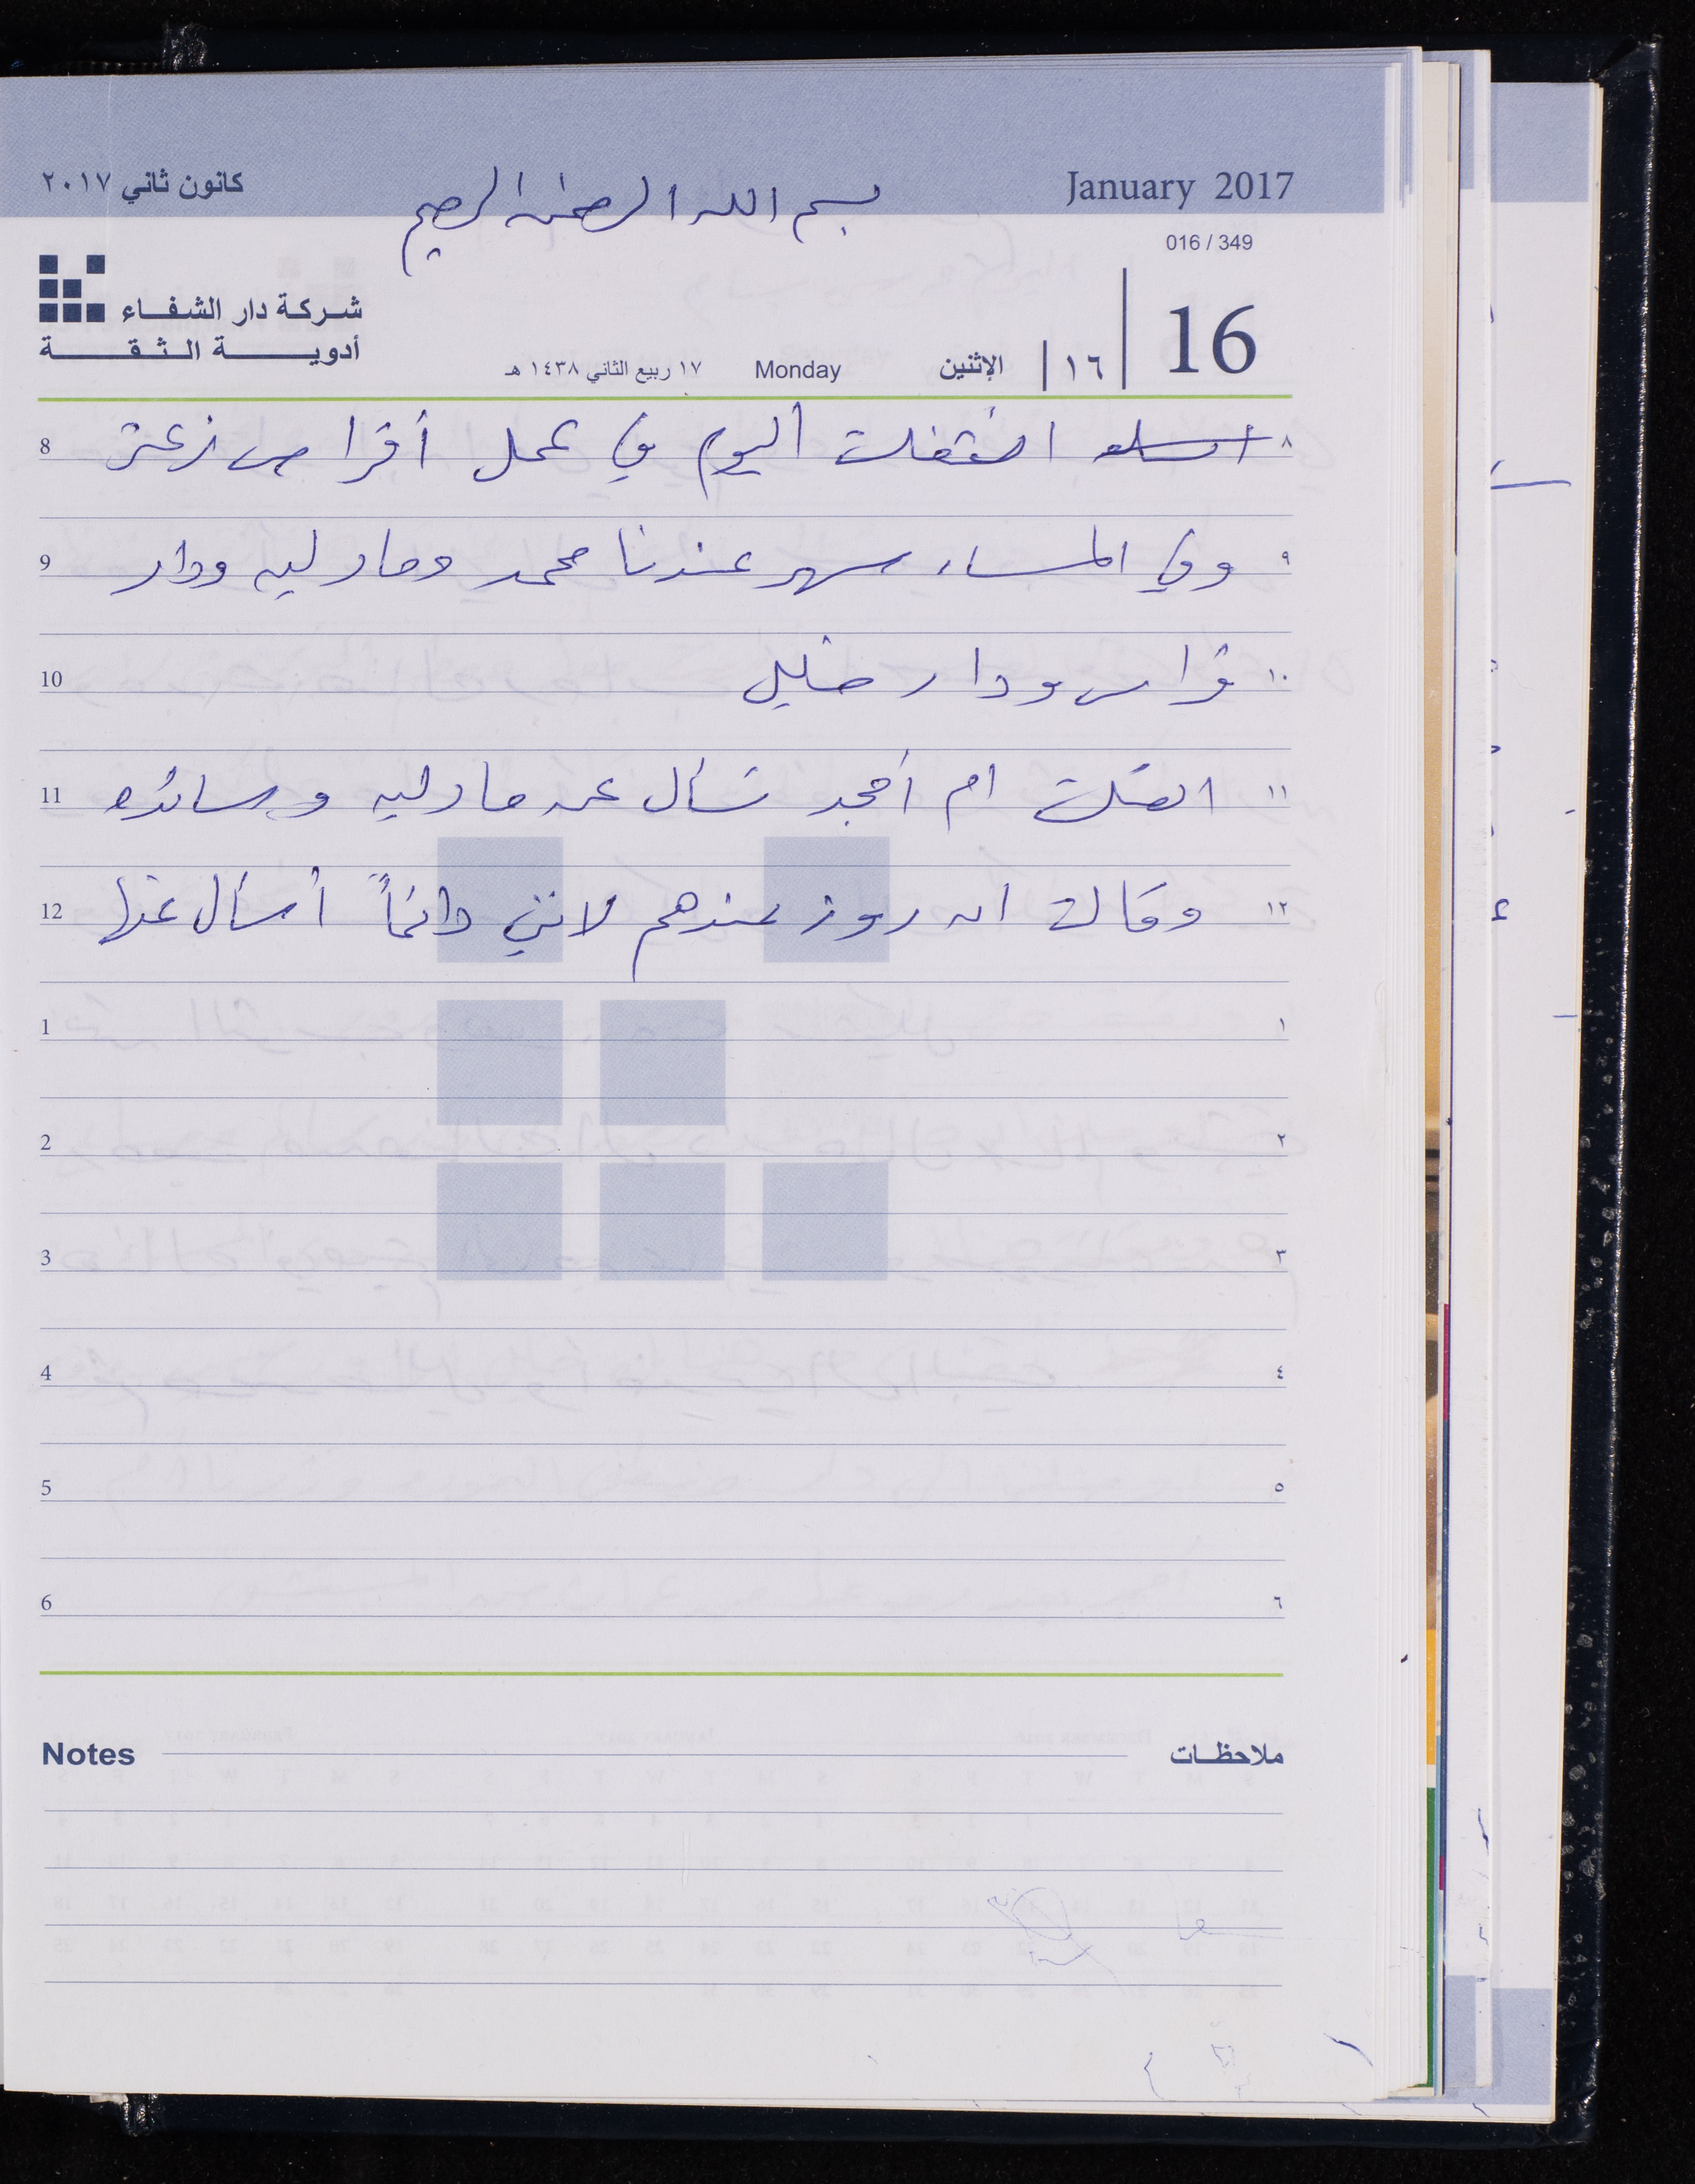 كانون ثاني ٢٠١٧
بسم الله الرحمن الرحيم
January 2017
016 / 349
شركة دار الشفاء
أدوية الثقة
16
١٦
الإثنين
Monday
١٧ ربيع الثاني ١٤٣٨ هـ
8 اشتغلت اليوم في عمل أقراص زعتر ٨
9 وفي المساء سهر عندنا محمد ومادلين ودار ٩
10 فراس ودار خليل ١٠
11 اتصلت ام أمجد تسأل عن مادلين وسائده ١١
12 وقالت ان روز عندهم لانني دائماً أسأل عنها ١٢
1 ١
2 ٢
3 ٣
4 ٤
5 ٥
6 ٦
Notes ملاحظات